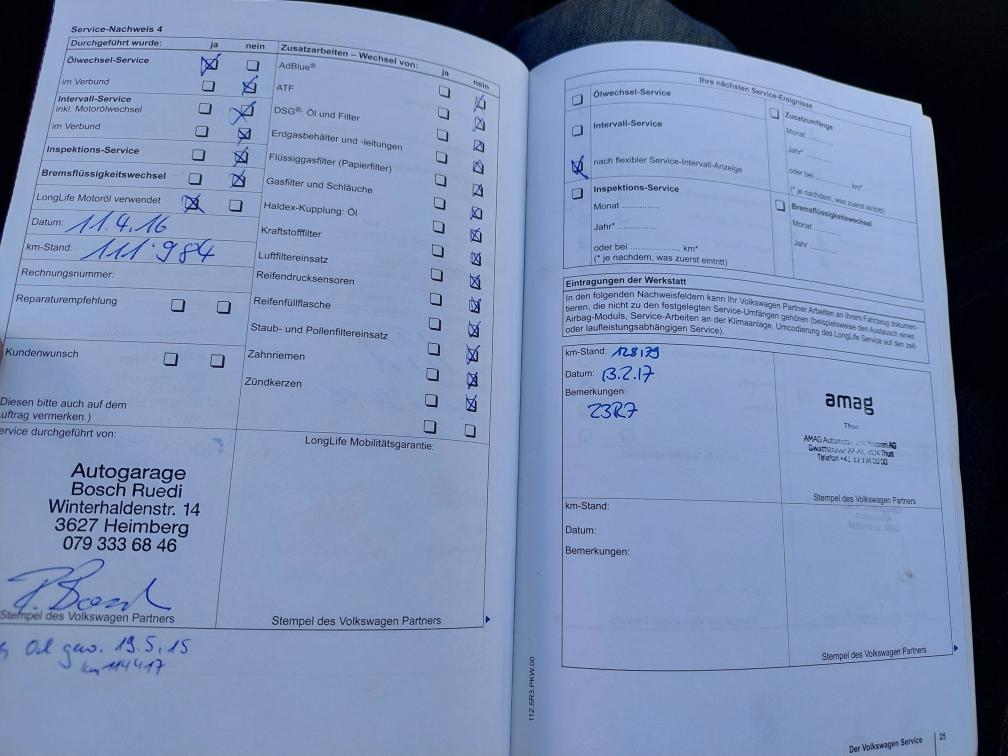 Service-Nachweis 4
Durchgeführt wurde: ja nein
Ölwechsel-Service
im Verbund
Intervall-Service
inkl. Motorölwechsel
im Verbund
Inspektions-Service
Bremsflüssigkeitswechsel
LongLife Motoröl verwendet
Datum: 11.4.16
km-Stand: 111'984
Rechnungsnummer:
Reparaturempfehlung
Kundenwunsch
Diesen bitte auch auf dem
uftrag vermerken.)
ervice durchgeführt von:
Autogarage
Bosch Ruedi
Winterhaldenstr. 14
3627 Heimberg
079 333 68 46
Stempel des Volkswagen Partners
Oel gew. 19.5.15
km 114417
Zusatzarbeiten – Wechsel von: ja nein
AdBlue®
ATF
DSG®: Öl und Filter
Erdgasbehälter und -leitungen
Flüssiggasfilter (Papierfilter)
Gasfilter und Schläuche
Haldex-Kupplung: Öl
Kraftstofffilter
Luftfiltereinsatz
Reifendrucksensoren
Reifenfüllflasche
Staub- und Pollenfiltereinsatz
Zahnriemen
Zündkerzen
LongLife Mobilitätsgarantie:
Stempel des Volkswagen Partners
112.5R3.PKW.00
Ihre nächsten Service-Ereignisse
Ölwechsel-Service
Intervall-Service
nach flexibler Service-Intervall-Anzeige
Inspektions-Service
Monat ..............
Jahr* ..............
oder bei .................... km*
(* je nachdem, was zuerst eintritt)
Zusatzumfänge
Monat ..........
Jahr* ..........
oder bei .......... km*
(* je nachdem, was zuerst eintritt)
Bremsflüssigkeitswechsel
Monat ..........
Jahr ..........
Eintragungen der Werkstatt
In den folgenden Nachweisfeldern kann Ihr Volkswagen Partner Arbeiten an Ihrem Fahrzeug dokumen-
tieren, die nicht zu den festgelegten Service-Umfängen gehören (beispielsweise den Austausch eines
Airbag-Moduls, Service-Arbeiten an der Klimaanlage, Umcodierung des LongLife Service auf den zeit-
oder laufleistungsabhängigen Service).
km-Stand: 128,179
Datum: 13.2.17
Bemerkungen:
23R7
amag
Thun
AMAG Automobil- und Motoren AG
Stempel des Volkswagen Partners
km-Stand:
Datum:
Bemerkungen:
Stempel des Volkswagen Partners
Der Volkswagen Service 25